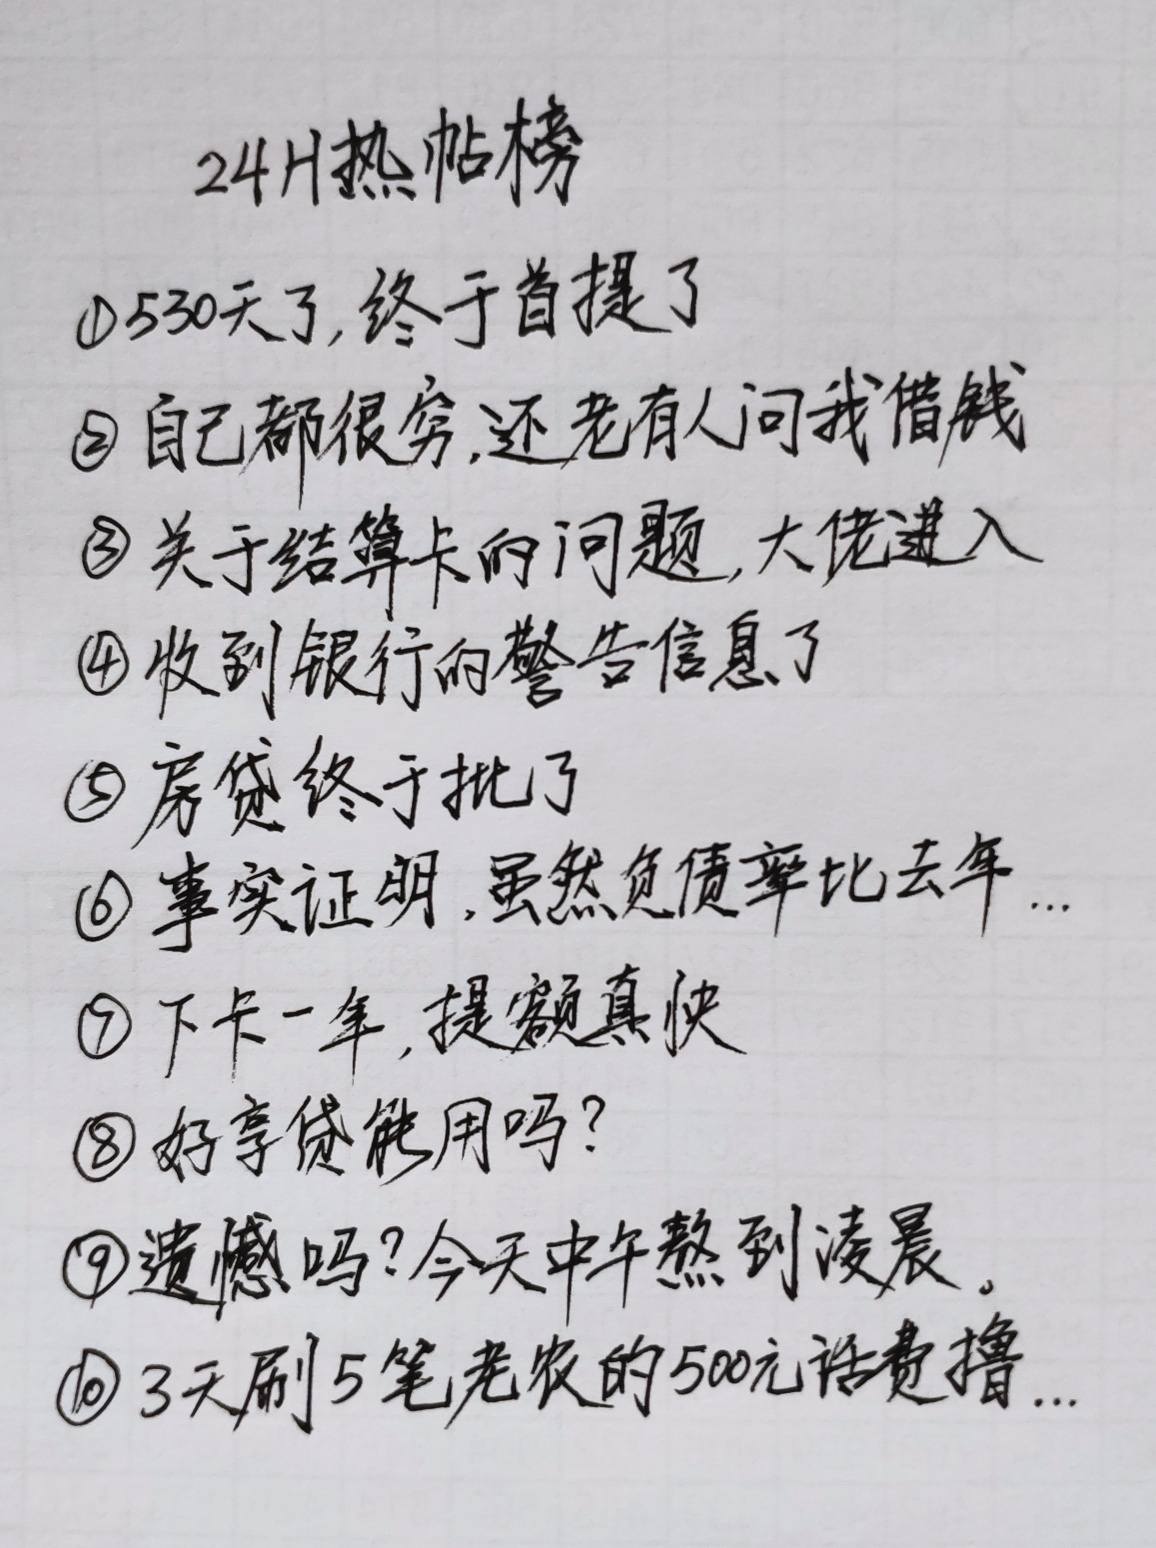 24H热帖榜
①530天了,终于首提了
②自己都很穷,还老有人问我借钱
③关于结算卡的问题,大佬进入
④收到银行的警告信息了
⑤房贷终于批了
⑥事实证明,虽然负债率比去年...
⑦下卡一年,提额真快
⑧好享贷能用吗?
⑨遗憾吗?今天中午熬到凌晨。
⑩3天刷5笔老农的500元话费撸...